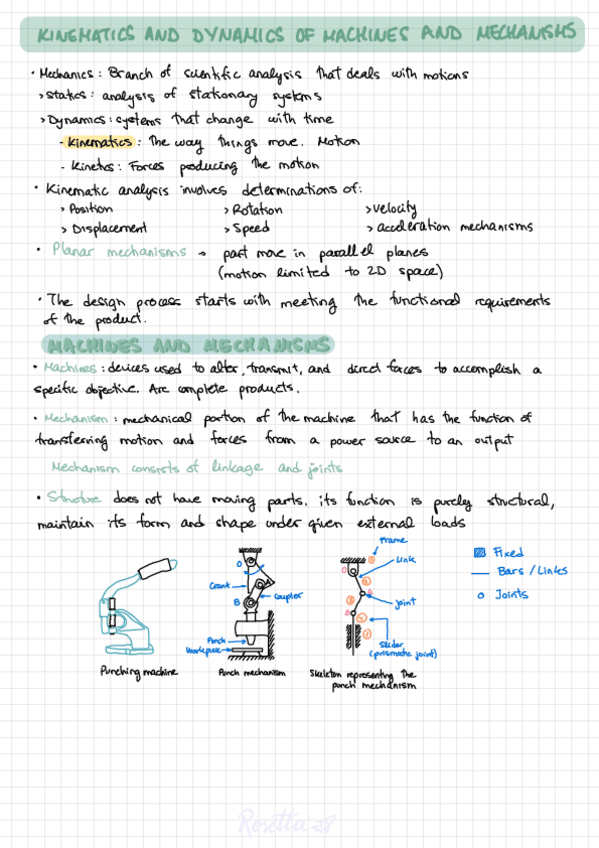 KINEMATICS AND DYNAMICS OF MACHINES AND MECHANISMS
• Mechanics: Branch of scientific analysis that deals with motions
> Statics: analysis of stationary systems
> Dynamics: systems that change with time
- Kinematics: The way things move. Motion
- Kinetics: Forces producing the motion
• Kinematic analysis involves determinations of:
> Position > Rotation > Velocity
> Displacement > Speed > acceleration mechanisms
• Planar mechanisms → part move in parallel planes
(motion limited to 2D space)
• The design process starts with meeting the functional requirements
of the product.
MACHINES AND MECHANISMS
• Machines: devices used to alter, transmit, and direct forces to accomplish a
specific objective. Are complete products.
• Mechanism: mechanical portion of the machine that has the function of
transferring motion and forces from a power source to an output
Mechanism consists of linkage and joints
• Structure does not have moving parts, its function is purely structural,
maintain its form and shape under given external loads
Frame
Link
Joint
Slider
(prismatic joint)
Fixed
Bars / Links
Joints
O
A
Crank
Coupler
B
Punch
Workpiece
Punching machine
Punch mechanism
Skeleton representing the
punch mechanism
Rosetta